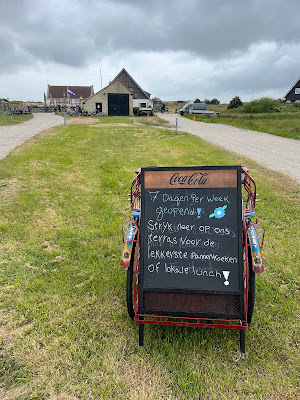 Coca-Cola
7 Dagen Per week
geopend!
Stryk neer op ons
terras voor de
lekkerste Pannenkoeken
of lokale lunch!